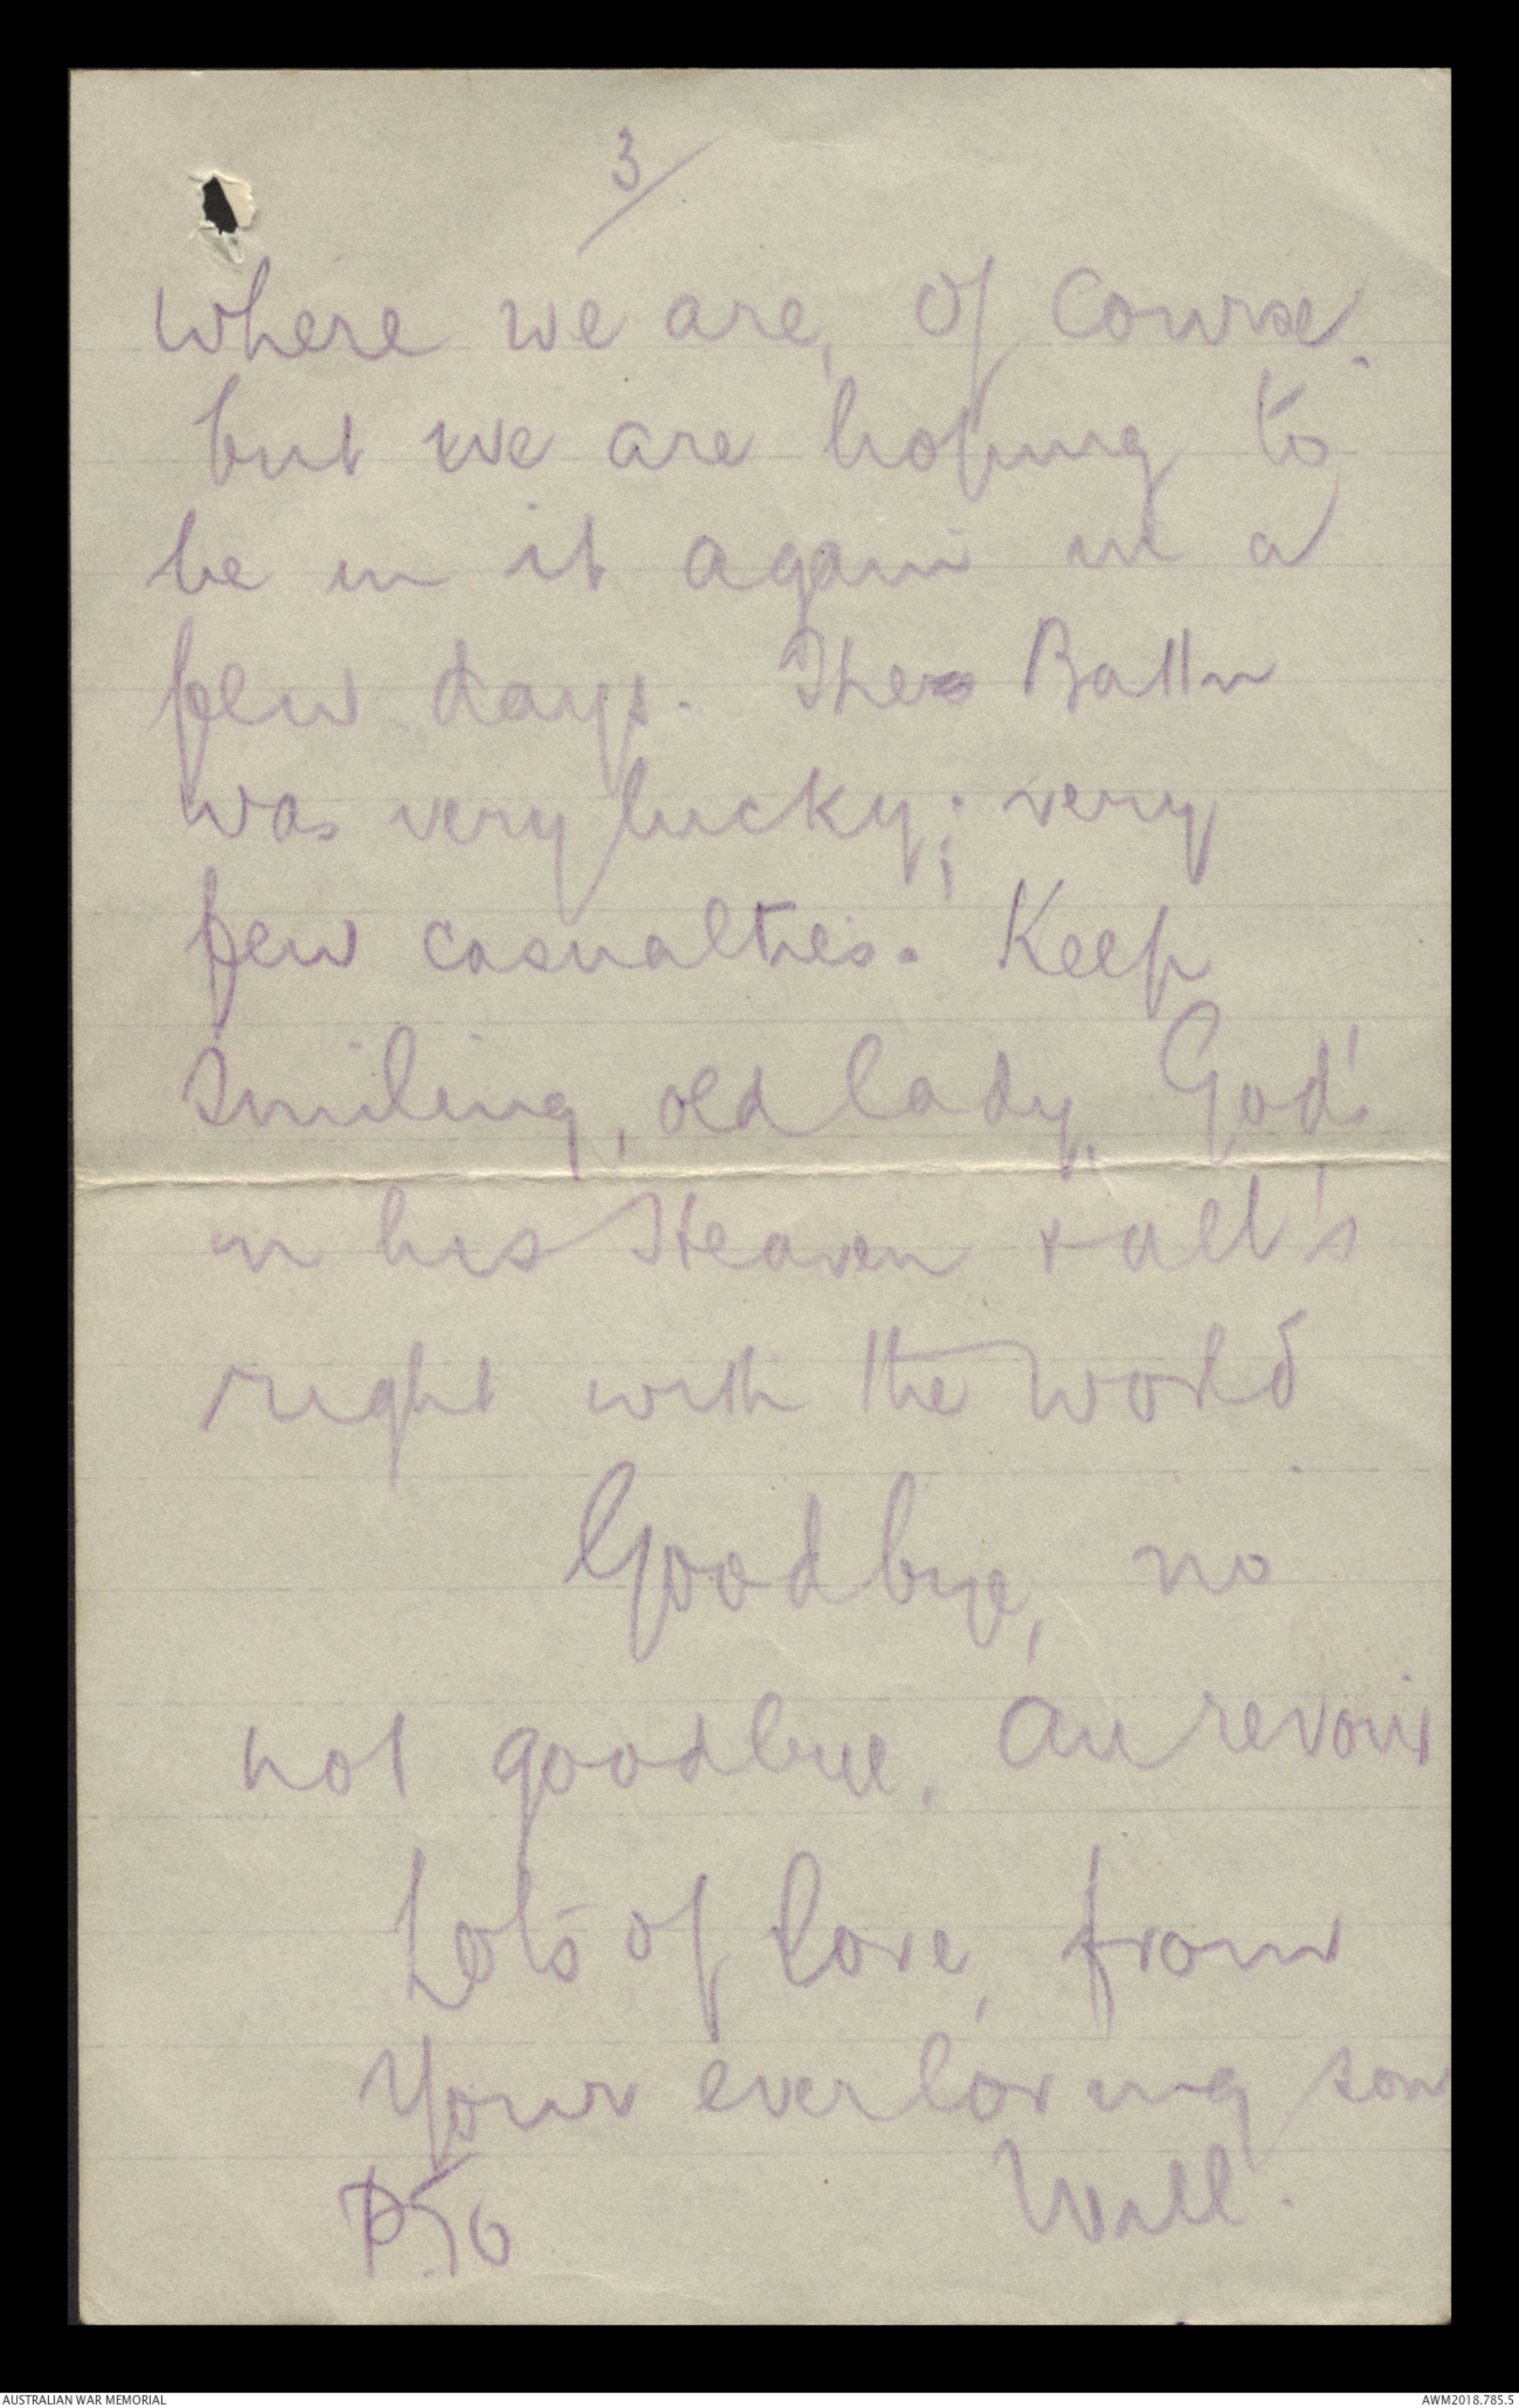 3/
where we are, of course.
but we are hoping to
be in it again in a
few days. The Battn
was very lucky; very
few casualties. Keep
smiling, old lady, God's
in his Heaven & all's
right with the world.
Goodbye, no
not goodbye. Au revoir
Lots of love, from
Your everloving son
Will.
P.T.O
AUSTRALIAN WAR MEMORIAL
AWM2018.785.5